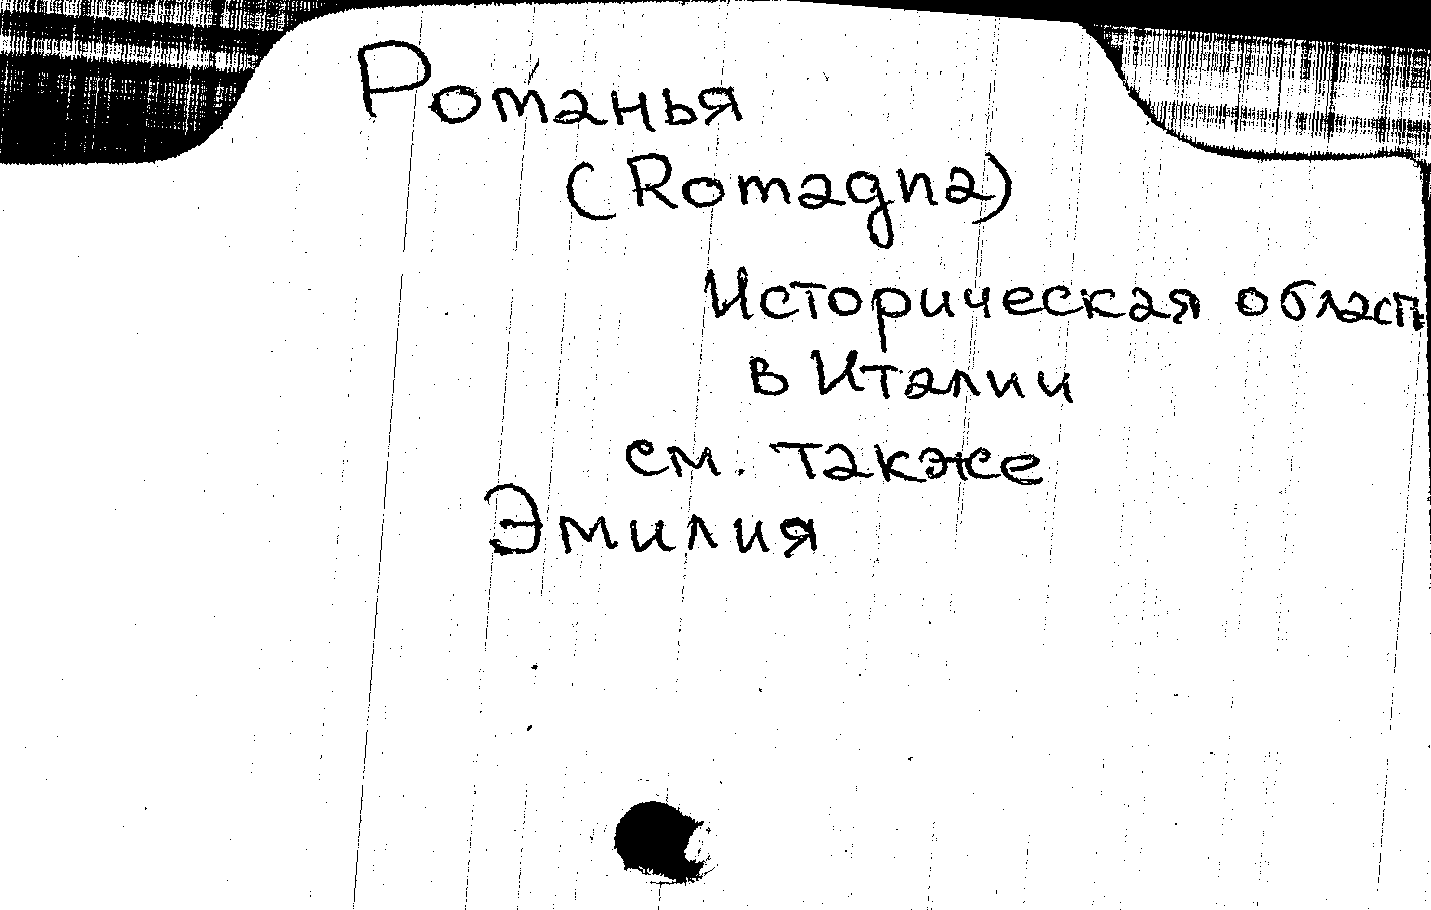 Романья
(Romagna)
Историческая област
в Италии
см. также
Эмилия